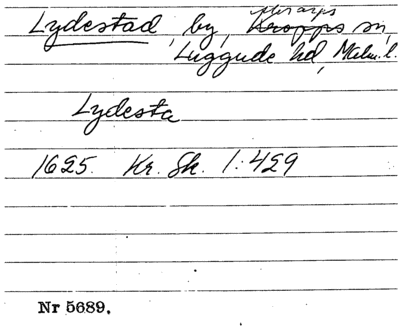 Lydestad, by, Kropps sn,
Luggude hd, Malm. l.
Lydesta
1625. Kr. Sk. 1:429
Nr 5689.